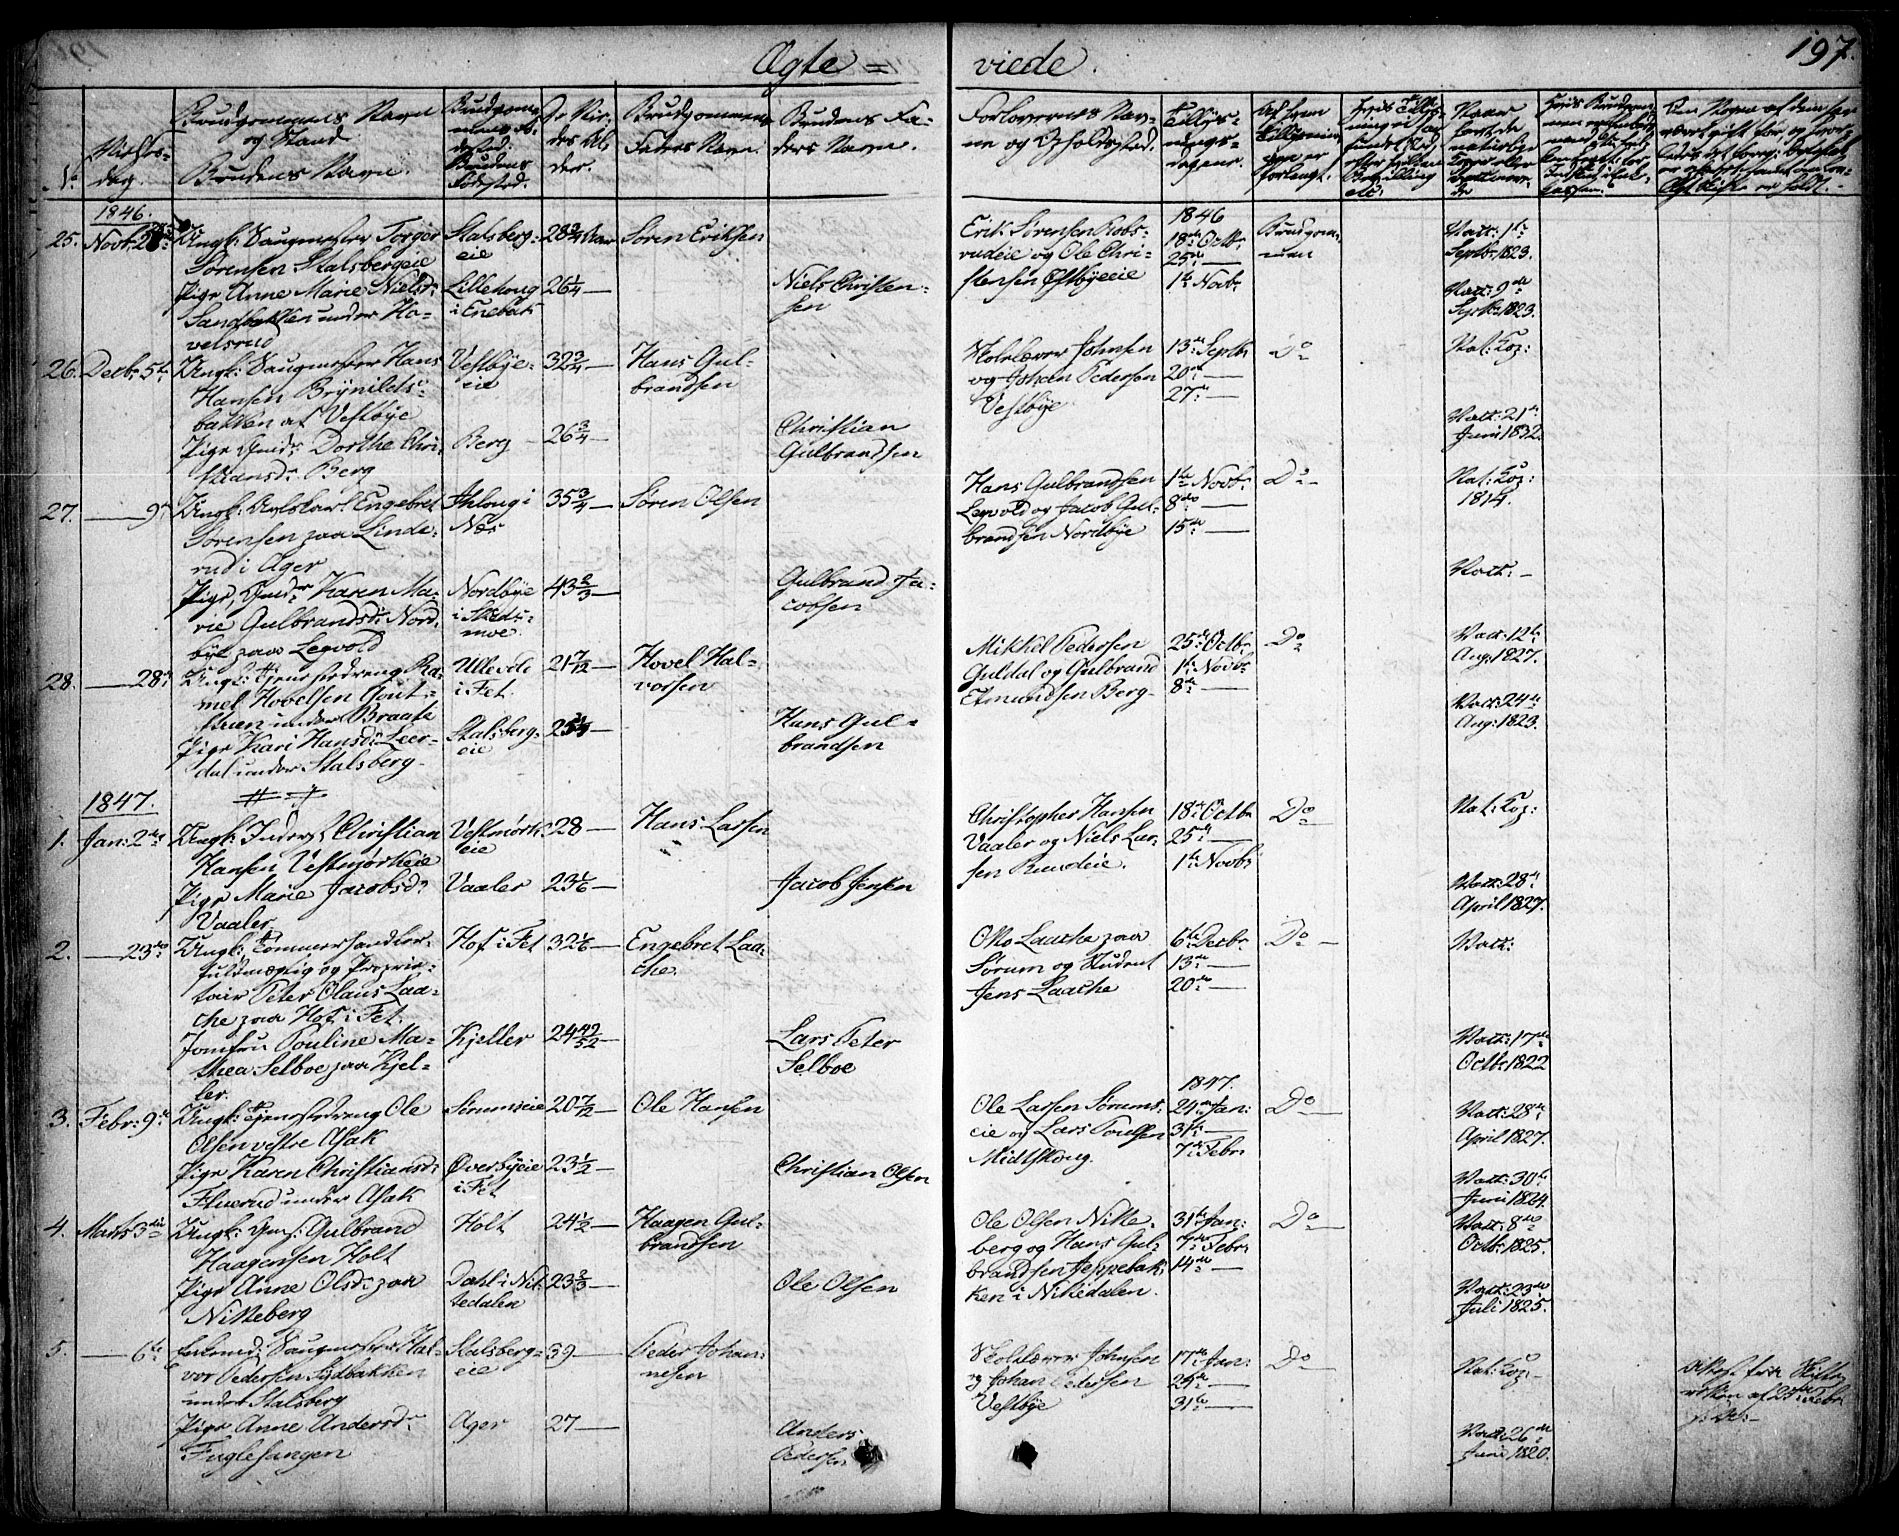 Ægte =
viede.
197.
No
Vielses-
dag.
Brudgommens Navn
og Stand
Brudens Navn.
Brudgom-
mens Fø-
dested.
Brudens
Fødested.
Brudgommens
Faders Navn.
Brudens Fa-
ders Navn.
Forlovernes Nav-
ne og Opholdssted.
Tillys-
nings-
dagene.
1846.
25. Novb: 28
Ungk: Saugmester Torger
Sörensen Stalsbergeie
Pige Anne Marie Nielsd:
Sandbakken under Ho-
velsrud
Stalsberg-
eie
Lillehoug
i Enebak
28 3/4 Aar
26 1/4 —
Sören Eriksen
Niels Christen-
sen
Erik Sörensen Robs-
rudeie og Ole Chri-
stensen Östbyeeie
1846
18de Octbr
25de —
1ste Novbr
Brudgom-
men
Vacc: 1ste
Septbr 1823.
Vacc: 9de
Septbr 1823.
26. Decbr 5te
Ungk: Saugmester Hans
Hansen Brynilds-
bakken af Vestbye
Pige Gmd: Dorthe Chri-
stiansd: Berg
Vestbye-
eie
Berg
32 3/4 —
26 3/4 —
Hans Gul-
brandsen
Christian
Gulbrandsen
Skolelærer Johnsen
og Johan Pedersen
Vestbye
13de Septbr
20de —
27de —
Do
Nat: Kop:
Vacc: 21de
Juni 1832.
27. —— 9de
Ungk: Avlskarl Engebret
Sörensen paa Linde-
rud i Ager
Pige, Gmdr Karen Ma-
rie Gulbrandsd: Nord-
bye paa Legvold
Ihlong i
Næs
Nordbye
i Skeds-
moe
35 3/4 —
43 2/3 —
Sören Olsen
Gulbrand Ja-
cobsen
Hans Gulbrandsen
Legvold og Jacob Gul-
brandsen Nordbye
1ste Novbr
8de —
15de —
Do —
Nat: Kop:
1814.
Vacc: —
28. —— 28de
Ungk: Tjenestedreng Ra-
mel Hovelsen Gout-
stuen under Braate
Pige Kari Hansd: Leer-
dal under Stalsberg
Ullevold
i Fet
Stalsberg-
eie
21 7/12 —
Hovel Hal-
vorsen
Hans Gul-
brandsen
Mikkel Pedersen
Guldal og Gulbrand
Edmundsen Berg
25de Octbr
1ste Novbr
8de —
Do
Vacc: 12te
Aug: 1827.
Vacc: 24de
Aug: 1823.
1847.
1. Jan: 2den
Ungk: Inderst Christian
Hansen Vestmörkeie
Pige Marie Jacobsd:
Vaaler
Vestmörk-
eie
Vaaler
28 —
23 1/6 —
Hans Larsen
Jacob Jensen
Christopher Hansen
Vaaler og Niels Lar-
sen Rundeie.
18de Octbr
25de
1ste Novbr
Do
Nat: Kop:
Vacc: 28de
April 1827.
2. —— 23de
Ungk: Tömmerhandler-
fuldmægtig og Proprie-
tair Peter Olaus Laa-
che paa Hof i Fet.
Jomfru Pouline Ma-
thea Selboe paa Kjel-
ler.
Hof i Fet
Kjeller
32 1/6 —
24 42/52
Engebret Laa-
che.
Lars Peter
Selboe
Otto Laache paa
Sörum og Student
Jens Laache
6te Decbr
13de —
20de —
Do —
Vacc:
Vacc: 17de
Octb: 1822
3. Febr: 9de
Ungk: Tjenestedreng Ole
Olsen vestre Asak
Pige Karen Christiansd:
Fluerud under Asak
Sörumseie
Överbyeie
i Fet
20 7/12 —
23 1/2 —
Ole Hansen
Christian Olsen
Ole Larsen Sörums-
eie og Lars Poulsen
Midtskoug.
1847.
24de Jan:
31te —
7de Febr
Do —
Vacc: 28de
April 1827.
Vacc: 30te
Juni 1824.
4. Marts 3die
Ungk: Gmd: Gulbrand
Haagensen Holt
Pige Anne Olsd: paa
Nitteberg
Holt
Dahl i Nit-
tedalen
24 1/2 —
23 2/3 —
Haagen Gul-
brandsen
Ole Olsen
Ole Olsen Nitte-
berg og Hans Gul-
brandsen Jeppebak-
ken i Nittedalen.
31te Jan:
7de Febr
14de —
Do —
Vacc: 8de
Octb: 1825.
Vacc: 23de
Juli 1825.
5. —— 6te
Saugmester Hal-
vor Pedersen Sydbakken
under Stalsberg
Pige Anne Andersd:
Fuglesangen
Stalsberg-
eie
Ager
39 —
27 —
Peder Johan-
nesen
Anders
Pedersen
Skolelærer Johnsen
og Johan Pedersen
Vestbye
17de Jan:
24de —
31te —
Do
Nat: Kop: —
Vacc: 26de
Juni 1820.